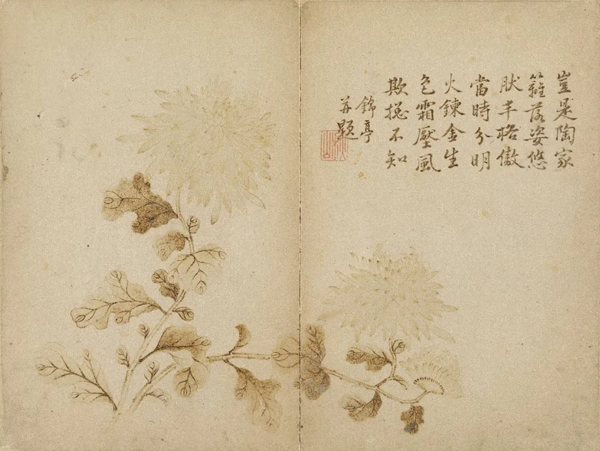 豈是陶家
籬落姿悠
肰丰格傲
當時分明
火鍊金生
色霜壓風
欺摠不知
錦亭
并題